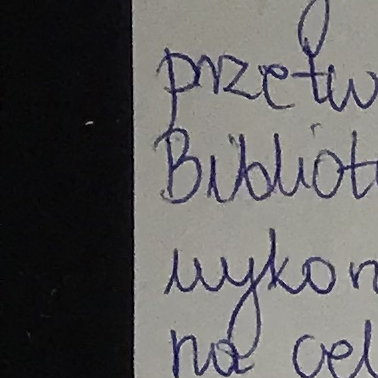 przetw
Bibliot
wykon
na cel